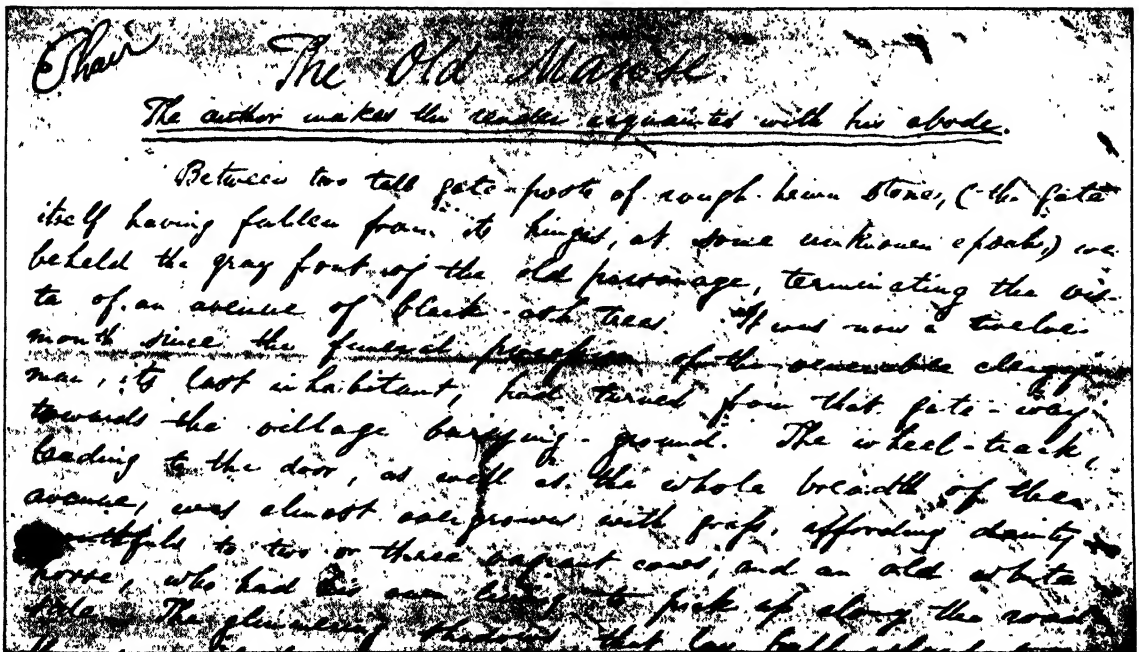 Phair
The Old Manse
The author makes the reader acquainted with his abode.
Between two tall gate-posts of rough-hewn stone, (the gate
itself having fallen from its hinges, at some unknown epoch,) we
beheld the gray front of the old parsonage, terminating the vis-
ta of an avenue of black-ash trees. It was now a twelve-
month since the funeral procession of the venerable clergy-
man, its last inhabitant, had turned from that gate-way
towards the village burying-ground. The wheel-track,
leading to the door, as well as the whole breadth of the
avenue, was almost overgrown with grass, affording dainty
mouthfuls to two or three vagrant cows, and an old white
horse, who had his own living to pick up along the road-
side. The glimmering shadows, that lay half asleep